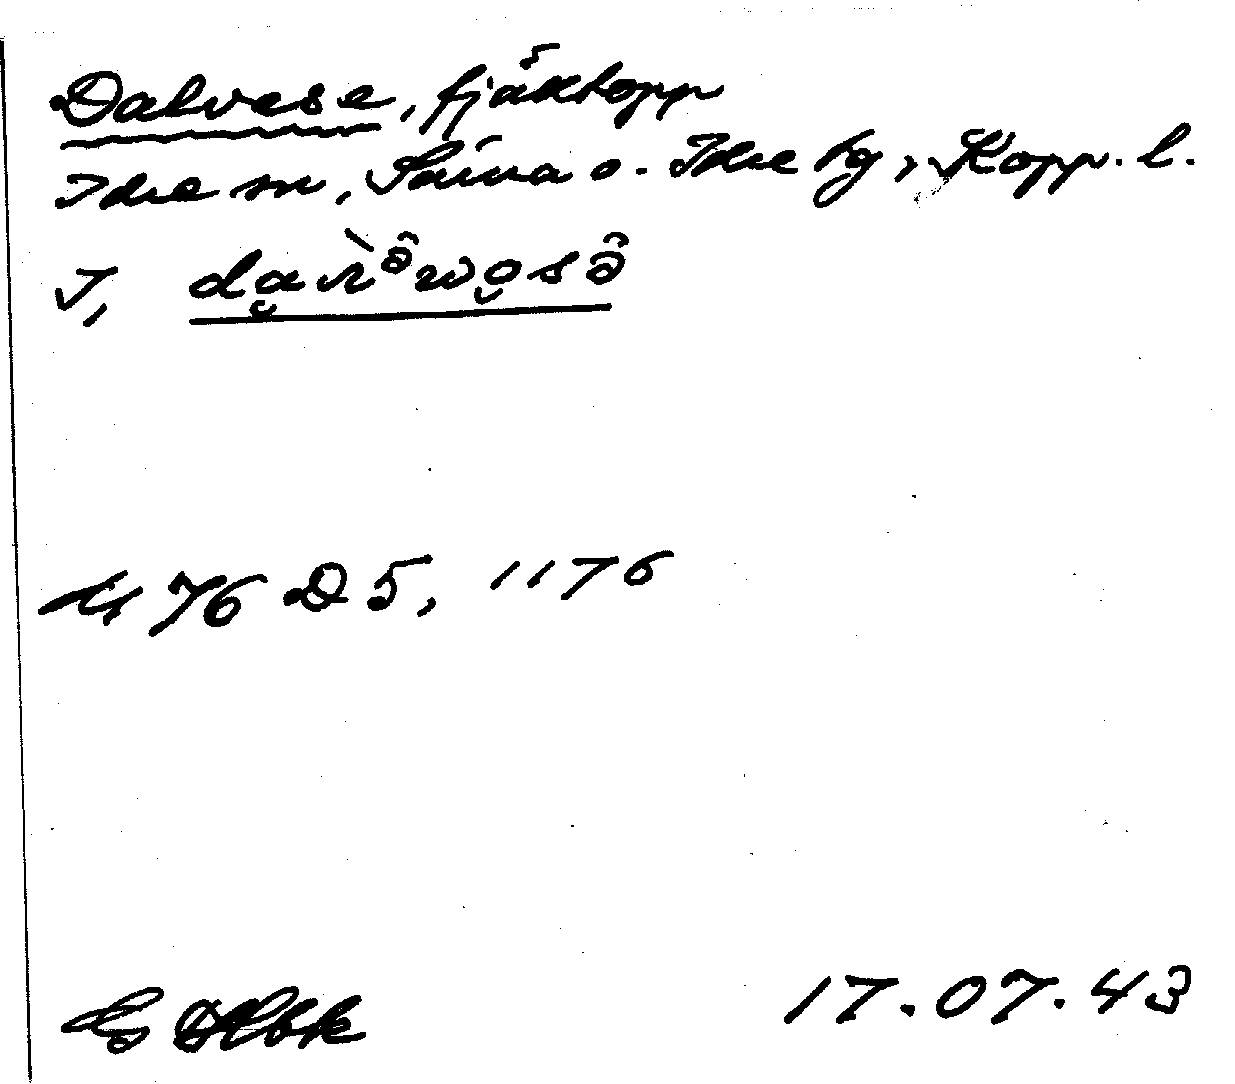 Dalvese, fjälltopp
Idre sn, Särna o. Idre tg, Kopp. l.
I,
76 D 5, 1176
17.07.43